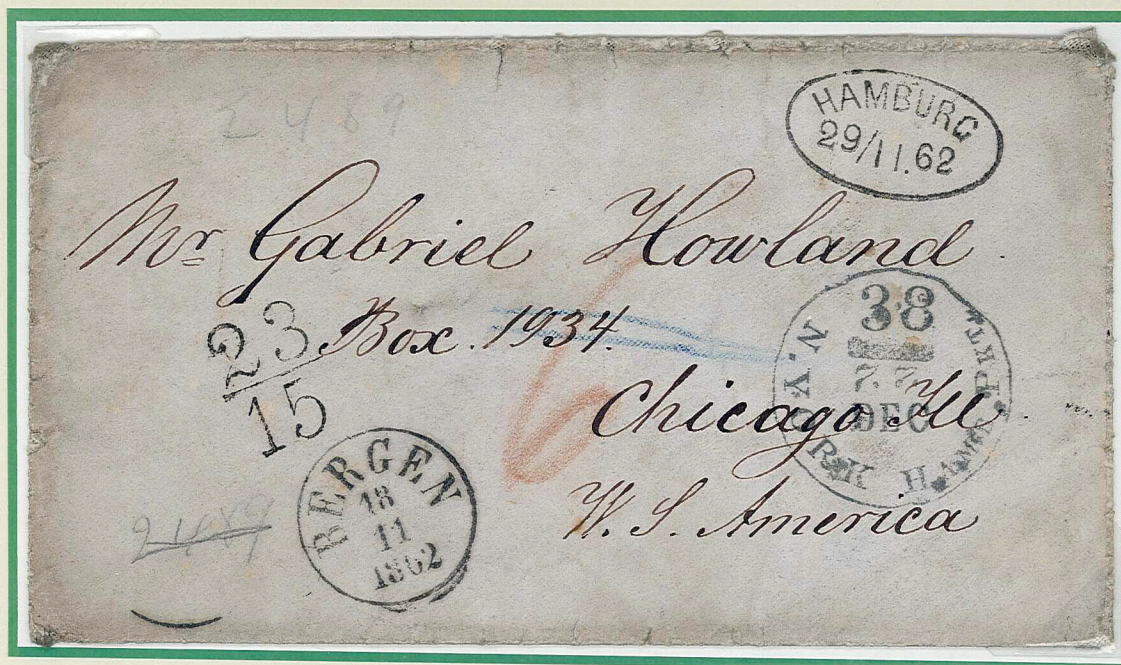 2489
HAMBURG
29/11.62
Mr Gabriel Howland
23
15
Box. 1934.
6
38
N. YORK HAM. PKT.
DEC
Chicago Ill
W. S. America
BERGEN
18
11
1862
2489